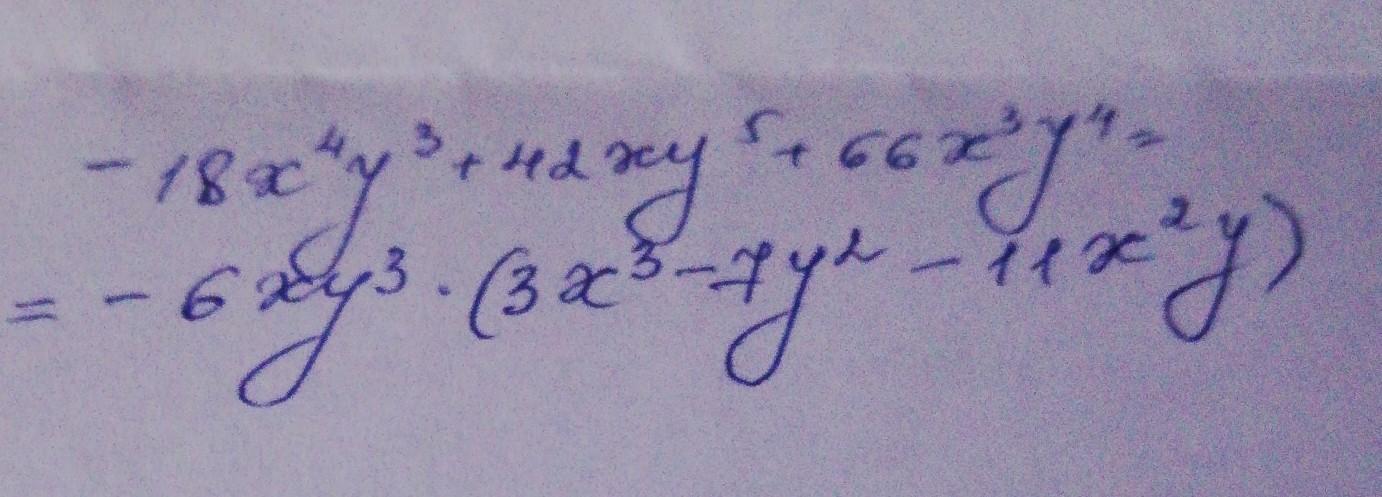 -18x⁴y³+42xy⁵+66x³y⁴=
=-6xy³·(3x³-7y²-11x²y)